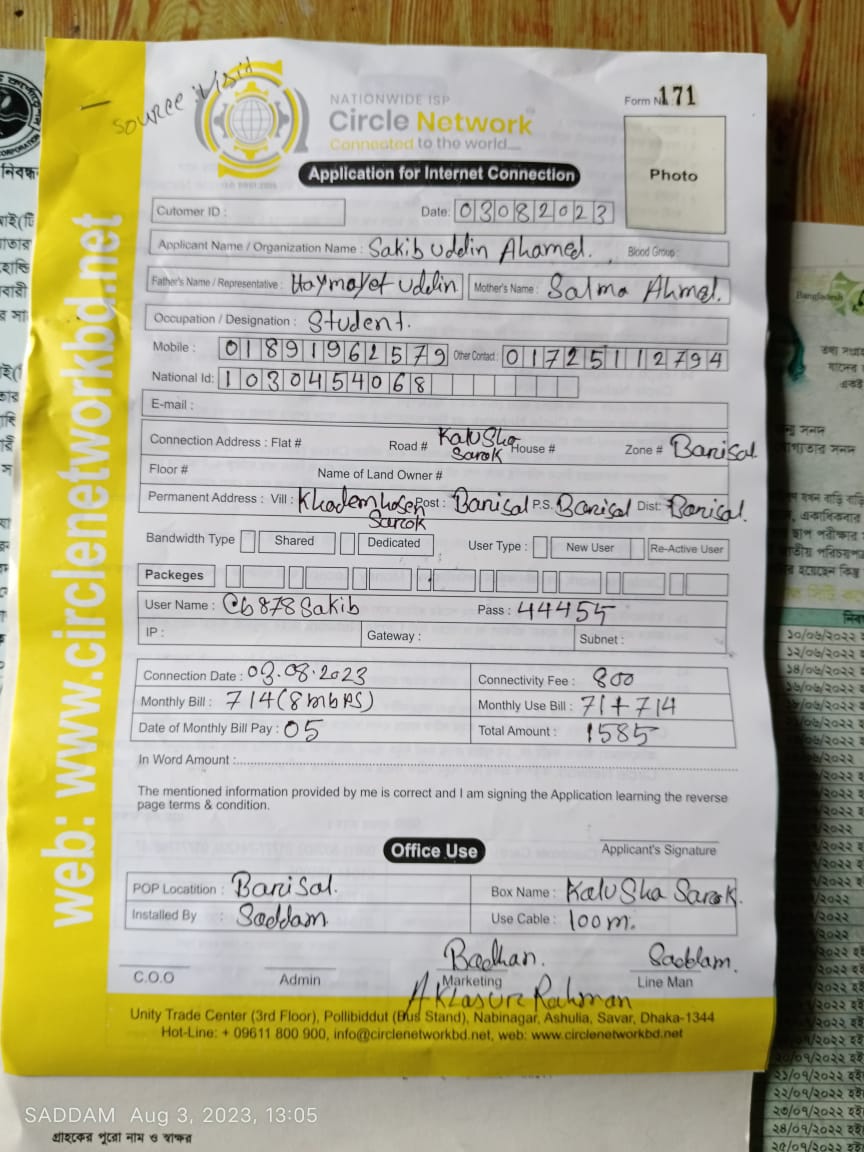 Source Visit
NATIONWIDE ISP
Circle Network
Connected to the world....
Form N 171
Photo
Application for Internet Connection
Cutomer ID :
Date: 03082023
Applicant Name / Organization Name : Sakib Uddin Ahamed. Blood Group :
Father's Name / Representative : Haymayet Uddin Mother's Name : Salma Ahmed.
Occupation / Designation : Student.
Mobile : 01891962579 Other Contact : 01725112794
National Id: 1030454068
E-mail :
Connection Address : Flat # Road # Kalu Sha Sarok House # Zone # Barisal
Floor # Name of Land Owner #
Permanent Address : Vill : Khademhosen Sarok Post : Barisal P.S. Barisal Dist: Barisal.
Bandwidth Type Shared Dedicated User Type : New User Re-Active User
Packeges
User Name : Cb878Sakib Pass : 44455
IP : Gateway : Subnet :
Connection Date : 03.08.2023 Connectivity Fee : 800
Monthly Bill : 714(8mbps) Monthly Use Bill : 71+714
Date of Monthly Bill Pay : 05 Total Amount : 1585
In Word Amount :
The mentioned information provided by me is correct and I am signing the Application learning the reverse
page terms & condition.
Applicant's Signature
Office Use
POP Locatition : Barisal. Box Name : Kalu Sha Sarok.
Installed By : Saddam Use Cable : 100m.
Badhan. Saddam.
C.O.O Admin Marketing Line Man
Rahman
Unity Trade Center (3rd Floor), Pollibiddut (Bus Stand), Nabinagar, Ashulia, Savar, Dhaka-1344
Hot-Line: + 09611 800 900, info@circlenetworkbd.net, web: www.circlenetworkbd.net
web: www.circlenetworkbd.net
Bangladesh
১০/০৬/২০২২
১২/০৬/২০২২
১৪/০৬/২০২২
২১/০৭/২০২২ হই
২২/০৭/২০২২ হই
২৩/০৭/২০২২ হই
২৪/০৭/২০২২ হই
২৫/০৭/২০২২ হই
SADDAM Aug 3, 2023, 13:05
গ্রাহকের পুরো নাম ও স্বাক্ষর